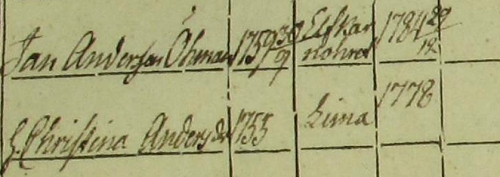 Jan Andersson Öhman 1759 30/9 Elfkar 1784 29/12
nohret
H. Christina Andersdr 1755 Lima 1778